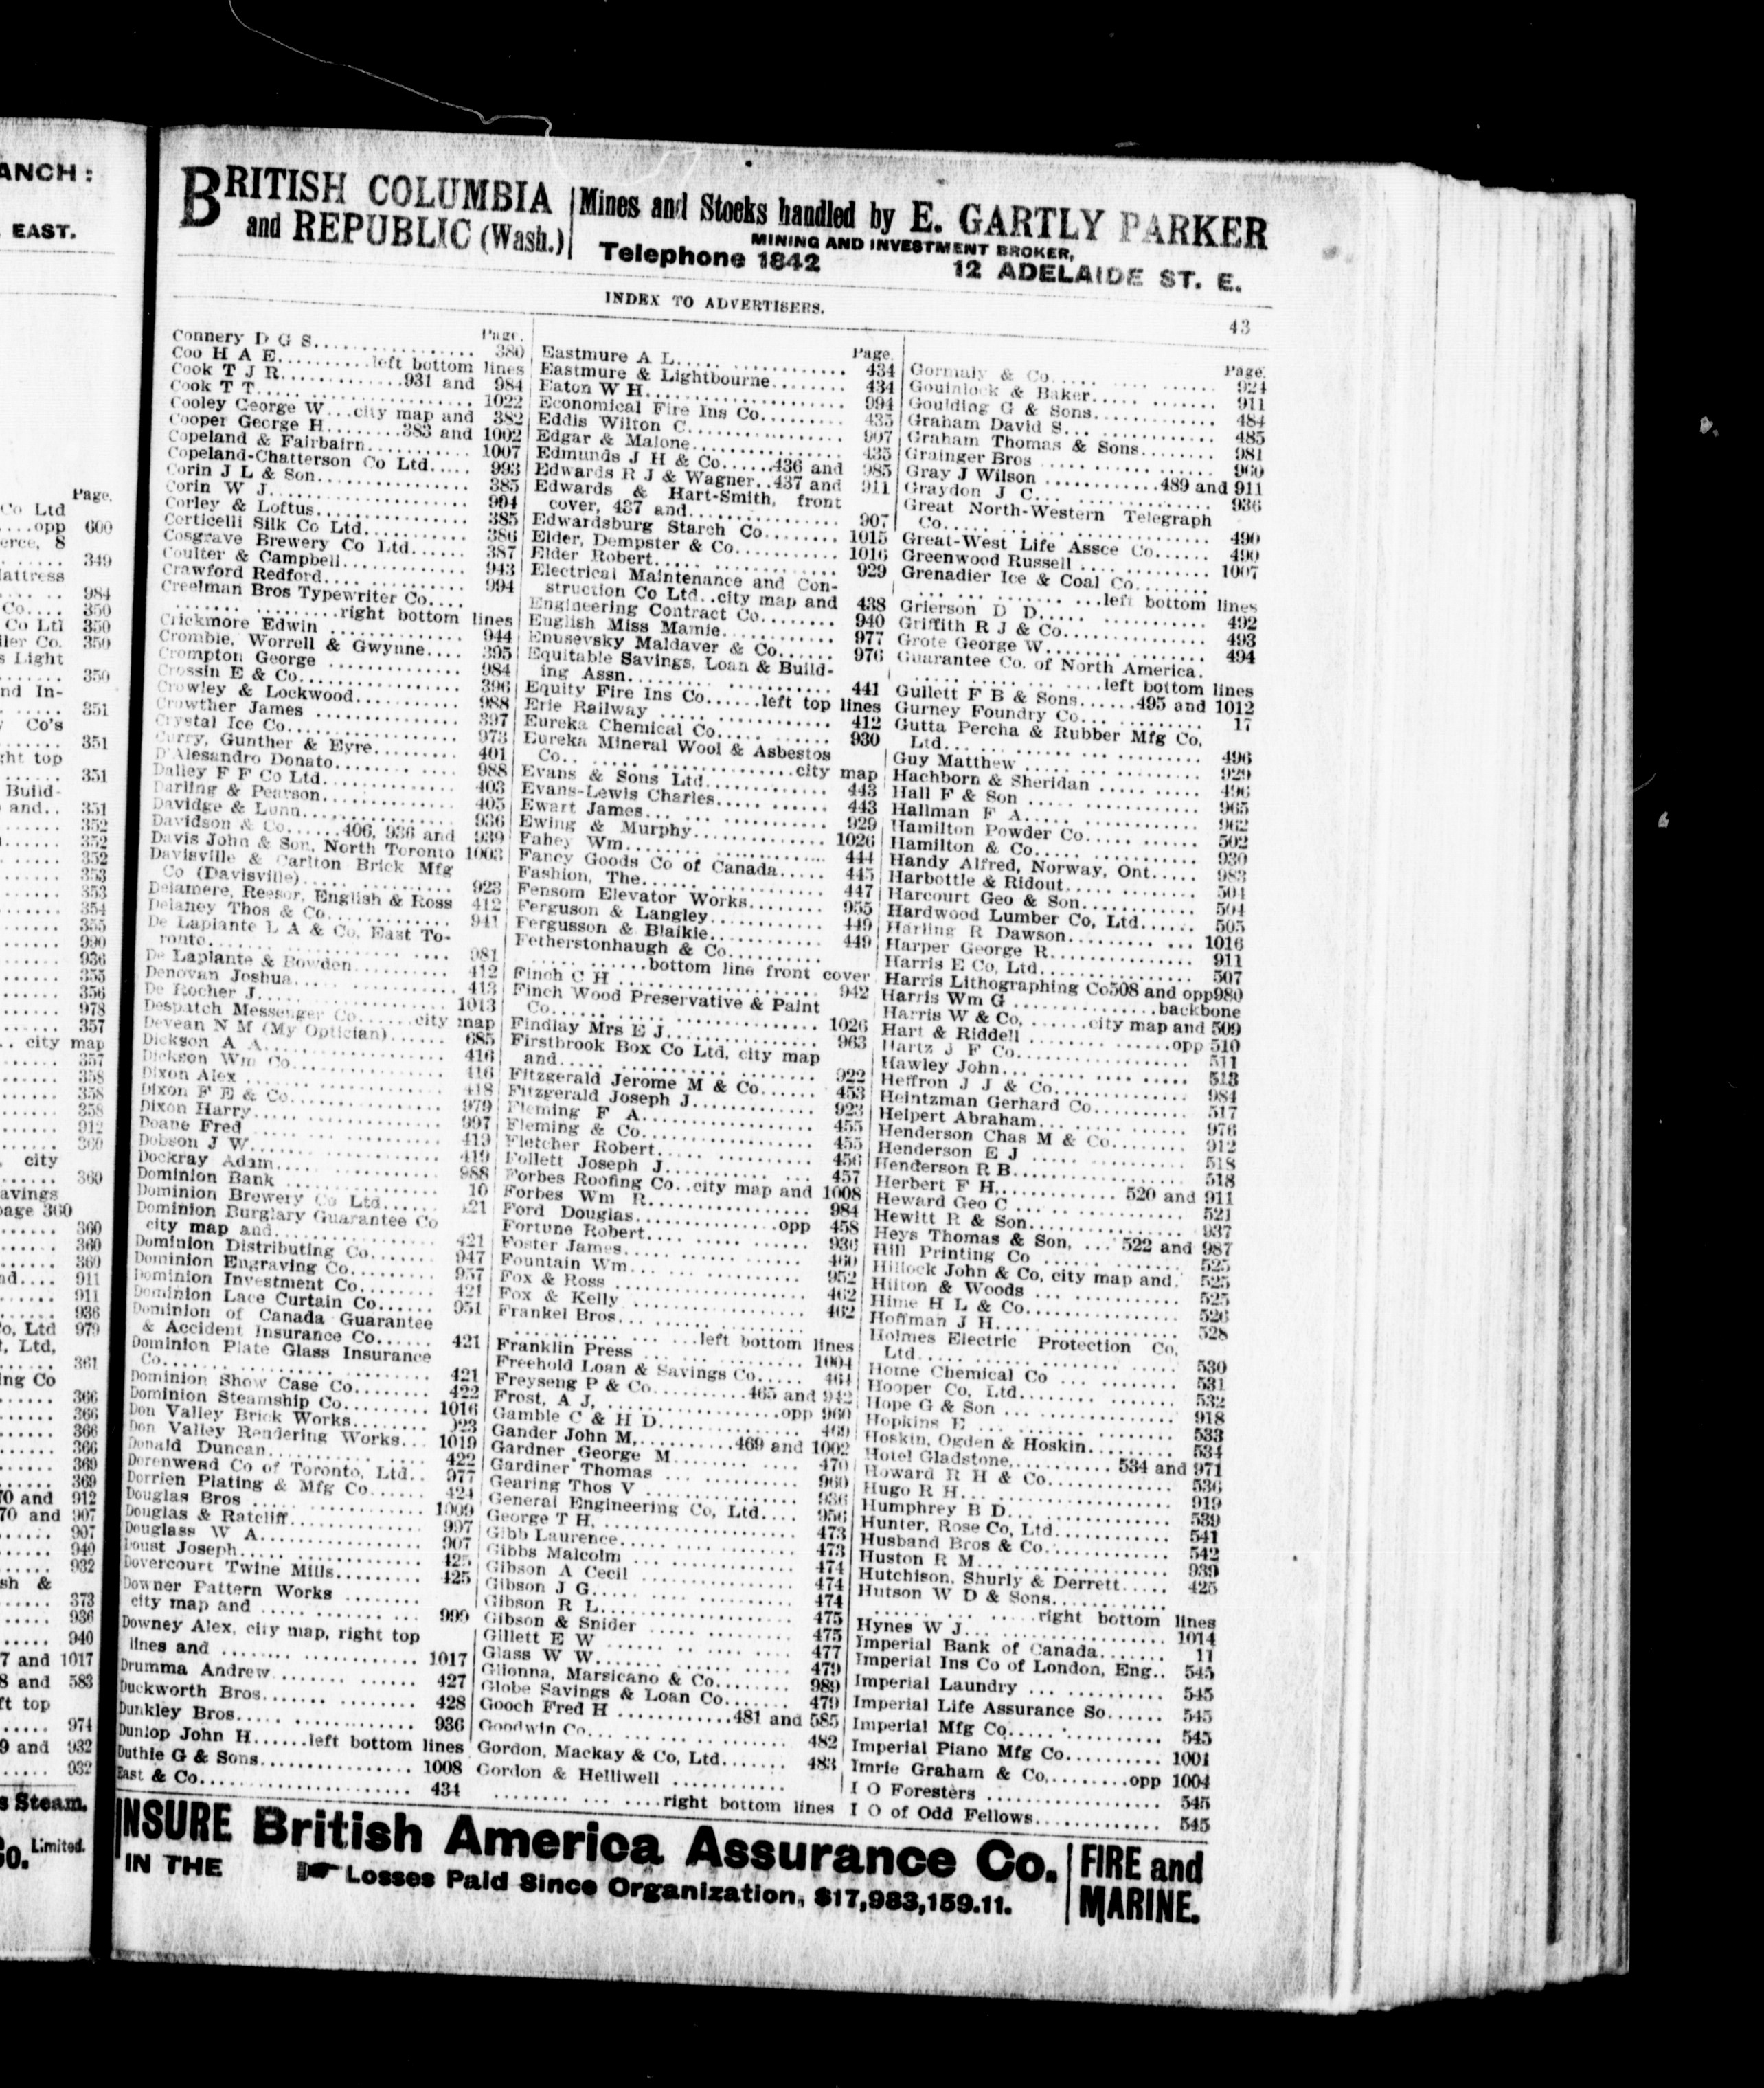 ANCH :
EAST.
Page.
Co Ltd
....opp 600
erce, 8
...... 349
lattress
..... 984
Co.... 350
Co Ltd 350
ller Co. 350
s Light
...... 350
nd In-
..... 351
Co's
...... 351
ght top
...... 351
Build-
and.. 351
...... 352
...... 352
...... 352
...... 353
...... 353
...... 354
...... 355
...... 990
...... 936
...... 355
...... 356
...... 978
...... 357
.. city map
...... 357
...... 358
...... 358
...... 358
...... 912
...... 360
, city
...... 360
avings
page 360
...... 360
...... 360
...... 360
nd.... 911
...... 911
...... 936
Co, Ltd 979
, Ltd,
...... 361
ing Co
...... 366
...... 366
...... 366
...... 366
...... 369
...... 369
70 and 912
70 and 907
...... 907
...... 940
...... 932
sh &
...... 373
...... 936
...... 940
7 and 1017
8 and 583
ft top
..... 974
9 and 932
..... 932
s Steam.
Co. Limited.
BRITISH COLUMBIA
and REPUBLIC (Wash.)
Mines and Stocks handled by E. GARTLY PARKER
MINING AND INVESTMENT BROKER,
Telephone 1842 12 ADELAIDE ST. E.
INDEX TO ADVERTISERS.
43
Page.
Connery D G S................ 380
Coo H A E..........left bottom lines
Cook T J R............931 and 984
Cook T T..................... 1022
Cooley George W...city map and 382
Cooper George H........383 and 1002
Copeland & Fairbairn........... 1007
Copeland-Chatterson Co Ltd..... 993
Corin J L & Son................ 385
Corin W J..................... 994
Corley & Loftus............... 385
Corticelli Silk Co Ltd........... 386
Cosgrave Brewery Co Ltd...... 387
Coulter & Campbell............. 943
Crawford Redford.............. 994
Creelman Bros Typewriter Co....
.................right bottom lines
Crickmore Edwin .............. 944
Crombie, Worrell & Gwynne.... 395
Crompton George .............. 984
Crossin E & Co................. 396
Crowley & Lockwood........... 988
Crowther James ............... 397
Crystal Ice Co................. 973
Curry, Gunther & Eyre......... 401
D'Alesandro Donato............ 988
Dalley F F Co Ltd............. 403
Darling & Pearson............. 405
Davidge & Lunn............... 936
Davidson & Co......406, 936 and 939
Davis John & Son, North Toronto 1003
Davisville & Carlton Brick Mfg
Co (Davisville)................ 923
Delamere, Reesor, English & Ross 412
Delaney Thos & Co............. 941
De Laplante L A & Co, East To-
ronto......................... 981
De Laplante & Bowden.......... 412
Denovan Joshua................ 413
De Rocher J................... 1013
Despatch Messenger Co......city map
Devean N M (My Optician)...... 685
Dickson A A................... 416
Dickson Wm Co................ 416
Dixon Alex .................... 418
Dixon F E & Co................ 979
Dixon Harry................... 997
Doane Fred .................... 419
Dobson J W.................... 419
Dockray Adam................. 988
Dominion Bank ................ 10
Dominion Brewery Co Ltd...... 421
Dominion Burglary Guarantee Co
city map and................... 421
Dominion Distributing Co....... 947
Dominion Engraving Co......... 957
Dominion Investment Co........ 421
Dominion Lace Curtain Co...... 951
Dominion of Canada Guarantee
& Accident Insurance Co...... 421
Dominion Plate Glass Insurance
Co............................ 421
Dominion Show Case Co......... 422
Dominion Steamship Co......... 1016
Don Valley Brick Works........ 923
Don Valley Rendering Works... 1019
Donald Duncan................. 422
Dorenwend Co of Toronto, Ltd.. 977
Dorrien Plating & Mfg Co...... 424
Douglas Bros .................. 1009
Douglas & Ratcliff............. 997
Douglass W A.................. 907
Doust Joseph................... 425
Dovercourt Twine Mills......... 425
Downer Pattern Works ........
city map and .................. 999
Downey Alex, city map, right top
lines and ..................... 1017
Drumma Andrew ............... 427
Duckworth Bros................ 428
Dunkley Bros.................. 936
Dunlop John H......left bottom lines
Duthie G & Sons............... 1008
East & Co..................... 434
Page.
Eastmure A L.................. 434
Eastmure & Lightbourne........ 434
Eaton W H..................... 994
Economical Fire Ins Co......... 435
Eddis Wilton C................. 907
Edgar & Malone................ 435
Edmunds J H & Co......436 and 985
Edwards R J & Wagner..437 and 911
Edwards & Hart-Smith, front
cover, 437 and................. 907
Edwardsburg Starch Co........ 1015
Elder, Dempster & Co.......... 1016
Elder Robert................... 929
Electrical Maintenance and Con-
struction Co Ltd..city map and 438
Engineering Contract Co........ 940
English Miss Mamie............ 977
Enusevsky Maldaver & Co...... 976
Equitable Savings, Loan & Build-
ing Assn...................... 441
Equity Fire Ins Co......left top lines
Erie Railway .................. 412
Eureka Chemical Co........... 930
Eureka Mineral Wool & Asbestos
Co.........................city map
Evans & Sons Ltd.............. 443
Evans-Lewis Charles........... 443
Ewart James................... 929
Ewing & Murphy............... 1026
Fahey Wm..................... 444
Fancy Goods Co of Canada..... 445
Fashion, The................... 447
Fensom Elevator Works........ 955
Ferguson & Langley............ 449
Fergusson & Blaikie............ 449
Fetherstonhaugh & Co..........
............bottom line front cover
Finch C H ..................... 942
Finch Wood Preservative & Paint
Co............................ 1026
Findlay Mrs E J................ 963
Firstbrook Box Co Ltd, city map
and........................... 922
Fitzgerald Jerome M & Co...... 453
Fitzgerald Joseph J............. 923
Fleming F A................... 455
Fleming & Co.................. 455
Fletcher Robert................ 456
Follett Joseph J................ 457
Forbes Roofing Co..city map and 1008
Forbes Wm R.................. 984
Ford Douglas...............opp 458
Fortune Robert................. 936
Foster James................... 460
Fountain Wm.................. 952
Fox & Ross .................... 462
Fox & Kelly ................... 462
Frankel Bros...................
.....................left bottom lines
Franklin Press ................. 1004
Freehold Loan & Savings Co..... 464
Freyseng P & Co..........465 and 942
Frost, A J, .................opp 960
Gamble C & H D............... 469
Gander John M,..........469 and 1002
Gardner George M.............. 470
Gardiner Thomas .............. 960
Gearing Thos V ............... 936
General Engineering Co, Ltd.... 956
George T H, ................... 473
Gibb Laurence................. 473
Gibbs Malcolm ................ 474
Gibson A Cecil ................ 474
Gibson J G.................... 474
Gibson R L.................... 475
Gibson & Snider ............... 475
Gillett E W ................... 477
Glass W W.................... 479
Gilonna, Marsicano & Co........ 989
Globe Savings & Loan Co....... 479
Gooch Fred H ............481 and 585
Goodwin Co................... 482
Gordon, Mackay & Co, Ltd....... 483
Gordon & Helliwell ............
....................right bottom lines
Page.
Gormaly & Co................. 924
Gouinlock & Baker............. 911
Goulding G & Sons............. 484
Graham David S............... 485
Graham Thomas & Sons........ 981
Grainger Bros ................. 960
Gray J Wilson ............489 and 911
Graydon J C................... 936
Great North-Western Telegraph
Co............................ 490
Great-West Life Assce Co...... 490
Greenwood Russell ............. 1007
Grenadier Ice & Coal Co.........
....................left bottom lines
Grierson D D.................. 492
Griffith R J & Co............... 493
Grote George W................ 494
Guarantee Co. of North America.
....................left bottom lines
Gullett F B & Sons......495 and 1012
Gurney Foundry Co............ 17
Gutta Percha & Rubber Mfg Co,
Ltd........................... 496
Guy Matthew .................. 929
Hachborn & Sheridan .......... 496
Hall F & Son .................. 965
Hallman F A................... 962
Hamilton Powder Co........... 502
Hamilton & Co................. 930
Handy Alfred, Norway, Ont..... 983
Harbottle & Ridout............. 504
Harcourt Geo & Son............ 504
Hardwood Lumber Co, Ltd...... 505
Harling R Dawson............. 1016
Harper George R............... 911
Harris E Co, Ltd............... 507
Harris Lithographing Co508 and opp980
Harris Wm G ................backbone
Harris W & Co, .......city map and 509
Hart & Riddell ...............opp 510
Hartz J F Co.................. 511
Hawley John................... 513
Heffron J J & Co............... 984
Heintzman Gerhard Co.......... 517
Helpert Abraham............... 976
Henderson Chas M & Co........ 912
Henderson E J ................ 518
Henderson R B................. 518
Herbert F H,............ 520 and 911
Heward Geo C ................. 521
Hewitt R & Son................ 937
Heys Thomas & Son, ... 522 and 987
Hill Printing Co ............... 525
Hillock John & Co, city map and. 525
Hilton & Woods ............... 525
Hime H L & Co................ 526
Hoffman J H................... 528
Holmes Electric Protection Co,
Ltd........................... 530
Home Chemical Co ............ 531
Hooper Co, Ltd................ 532
Hope G & Son ................. 918
Hopkins E ..................... 533
Hoskin, Ogden & Hoskin......... 534
Hotel Gladstone,............ 534 and 971
Howard R H & Co.............. 536
Hugo R H...................... 919
Humphrey B D................. 539
Hunter, Rose Co, Ltd............ 541
Husband Bros & Co............. 542
Huston R M.................... 939
Hutchison, Shurly & Derrett..... 425
Hutson W D & Sons............
....................right bottom lines
Hynes W J.................... 1014
Imperial Bank of Canada........ 11
Imperial Ins Co of London, Eng.. 545
Imperial Laundry .............. 545
Imperial Life Assurance So...... 545
Imperial Mfg Co................ 545
Imperial Piano Mfg Co.......... 1001
Imrie Graham & Co,.........opp 1004
I O Foresters .................. 545
I O of Odd Fellows............. 545
INSURE IN THE
British America Assurance Co.
Losses Paid Since Organization, $17,983,159.11.
FIRE and
MARINE.